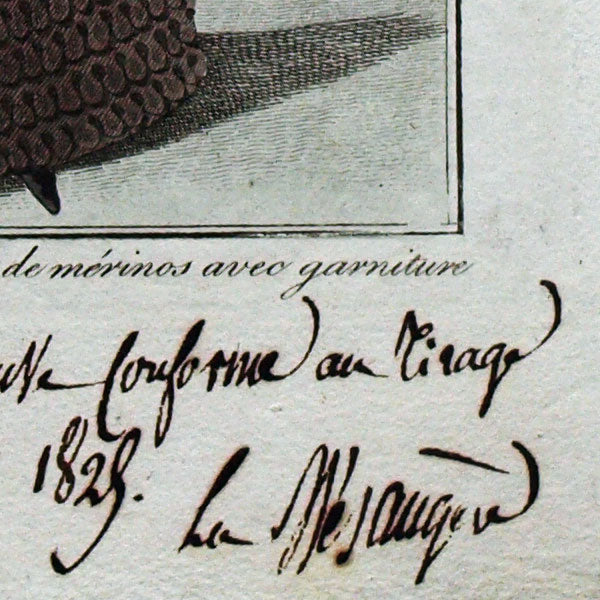 de mérinos avec garniture
conforme au tirage
1825.
La Mésangère